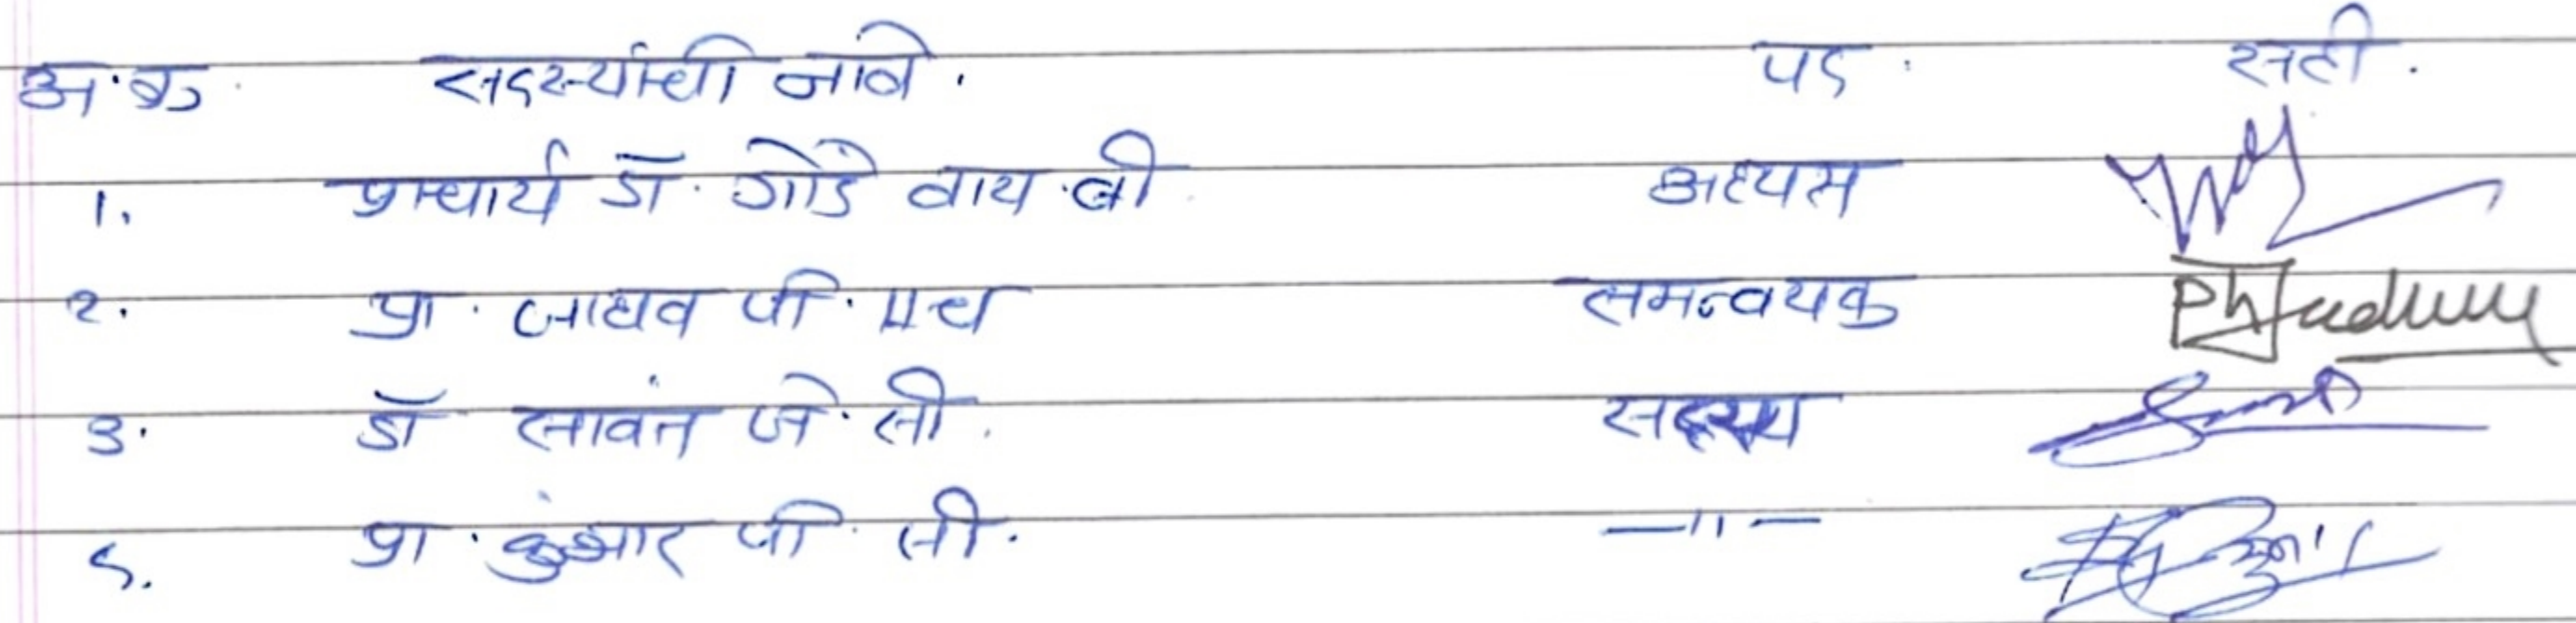 अ.क्र. सदस्यांची नावे. पद. सही.
1. प्राचार्य डॉ. गोंडे वाय.बी. अध्यक्ष
२. प्रा. जाधव पी.एच समन्वयक PhJadhav
3. डॉ सावंत जे.सी. सदस्य
५. प्रा. कुंभार पी. सी. —11—